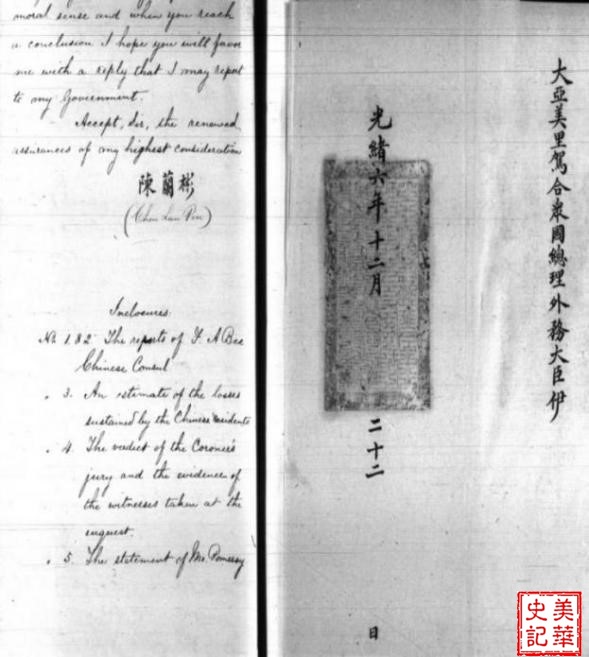 moral sense and when you reach
a conclusion I hope you will favor
me with a reply that I may report
to my Government.
Accept, Sir, the renewed
assurances of my highest consideration
陳蘭彬
(Chen Lan Pin)
Inclosures
No. 1 & 2 The reports of F. A Bee
Chinese Consul
" 3. An estimate of the losses
sustained by the Chinese residents
" 4. The verdict of the Coroner's
jury and the evidence of
the witnesses taken at the
inquest.
" 5. The statement of Mr. Pomeroy
大亞美里駕合衆國總理外務大臣伊
光緒六年十二月
二十二
日
美華
史記